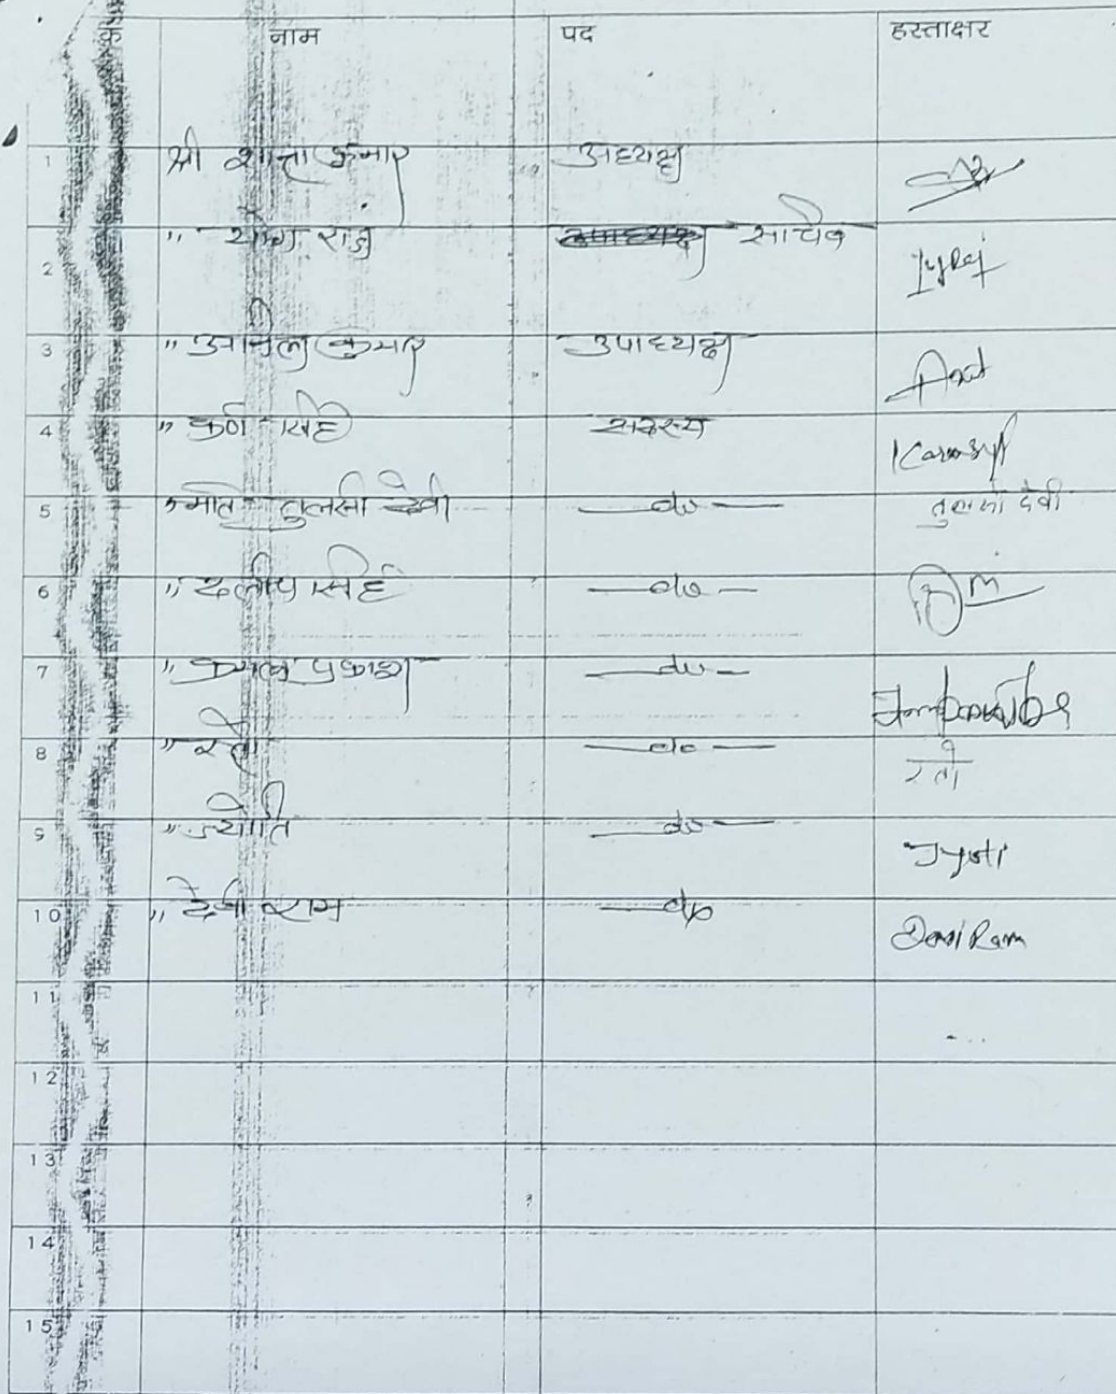 क नाम पद हस्ताक्षर
1 श्री शान्ता कुमार अध्यक्ष
2 " योग राज सचिव Iyraj
3 " अनिल कुमार उपाध्यक्ष
4 " कर्ण सिंह सदस्य Karansingh
5 श्रीमति तुलसी देवी —do— तुलसी देवी
6 " दलीप सिंह —do—
7 " कमल प्रकाश —do—
8 " रती —do— रती
9 " ज्योति —do— Jyoti
10 " देवी राम —do DeviRam
11
12
13
14
15